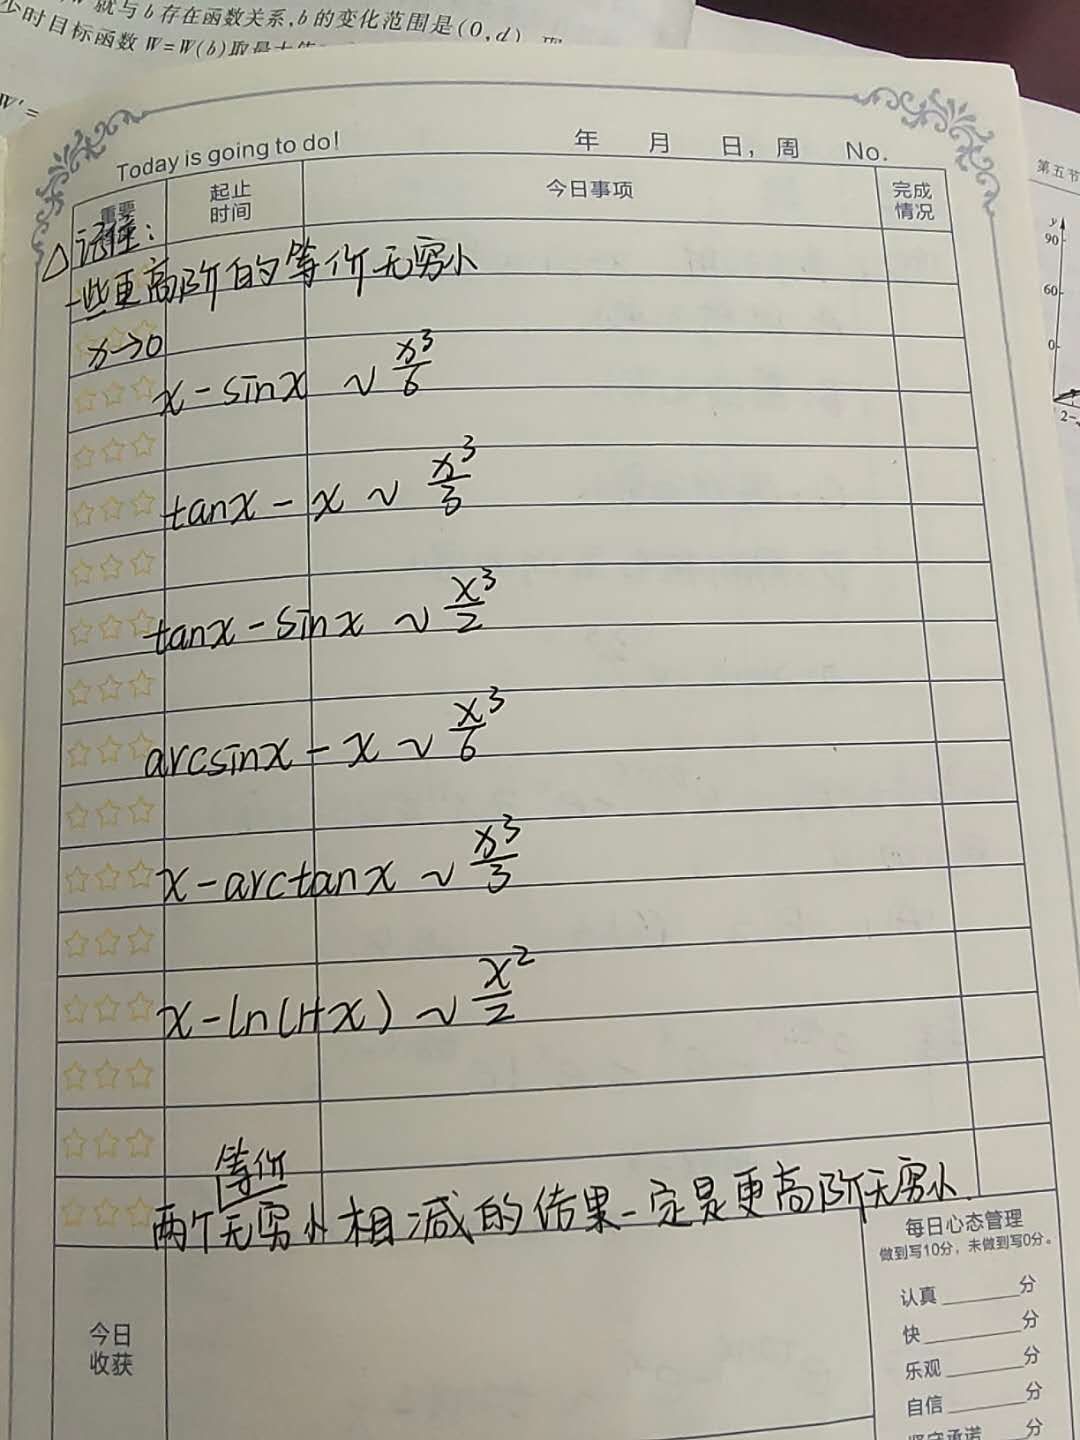 就与b存在函数关系,b的变化范围是(0,d)
少时目标函数W=W(b)取最大值
W'=
Today is going to do!
年 月 日,周 No.
重要
起止
时间
今日事项
完成
情况
第五节
y
90
60
0
2
△记住:
一些更高阶的等价无穷小
x→0
x-sinx ~ x³/6
tanx-x ~ x³/3
tanx-sinx ~ x³/2
arcsinx-x ~ x³/6
x-arctanx ~ x³/3
x-ln(1+x) ~ x²/2
等价
两个无穷小相减的结果一定是更高阶无穷小.
今日
收获
每日心态管理
做到写10分,未做到写0分。
认真____分
快____分
乐观____分
自信____分
坚守承诺____分